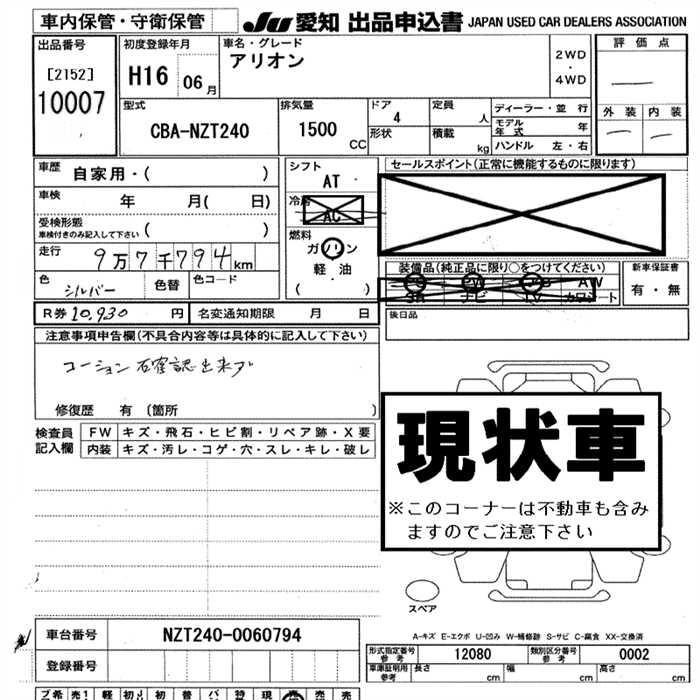 車内保管・守衛保管 JU 愛知 出品申込書 JAPAN USED CAR DEALERS ASSOCIATION
出品番号 初度登録年月 車名・グレード 評価点
[2152] H16 06月 アリオン 2WD・4WD
10007
型式 CBA-NZT240 排気量 1500 CC ドア 4 定員 人 ディーラー・並行 外装 内装
形状 積載 kg モデル年式 年
ハンドル 左・右
車歴 自家用・( ) シフト AT セールスポイント(正常に機能するものに限ります)
車検 年 月( 日) 冷房 AC
受検形態 車検付きのみ記入して下さい ( ) 燃料 ガソリン
軽・油
( )
走行 9万7千794km 装備品(純正品に限り○をつけてください) 新車保証書
色 シルバー 色替 色コード ナビ TV カワシート AW 有・無
R券 10,930 円 名変通知期限 月 日 後日品
注意事項申告欄(不具合内容等は具体的に記入して下さい)
コーション 確認出来ず
修復歴 有 (箇所 )
現状車
※このコーナーは不動車も含み
ますのでご注意下さい
検査員記入欄 FW キズ・飛石・ヒビ割・リペア跡・X要
内装 キズ・汚レ・コゲ・穴・スレ・キレ・破レ
スペア
車台番号 NZT240-0060794
登録番号
A-キズ E-エクボ U-凹み W-補修跡 S-サビ C-腐食 XX-交換済
形式指定番号 参考 12080 類別区分番号 参考 0002
車庫証明用 参考 長さ cm 幅 cm 高さ cm